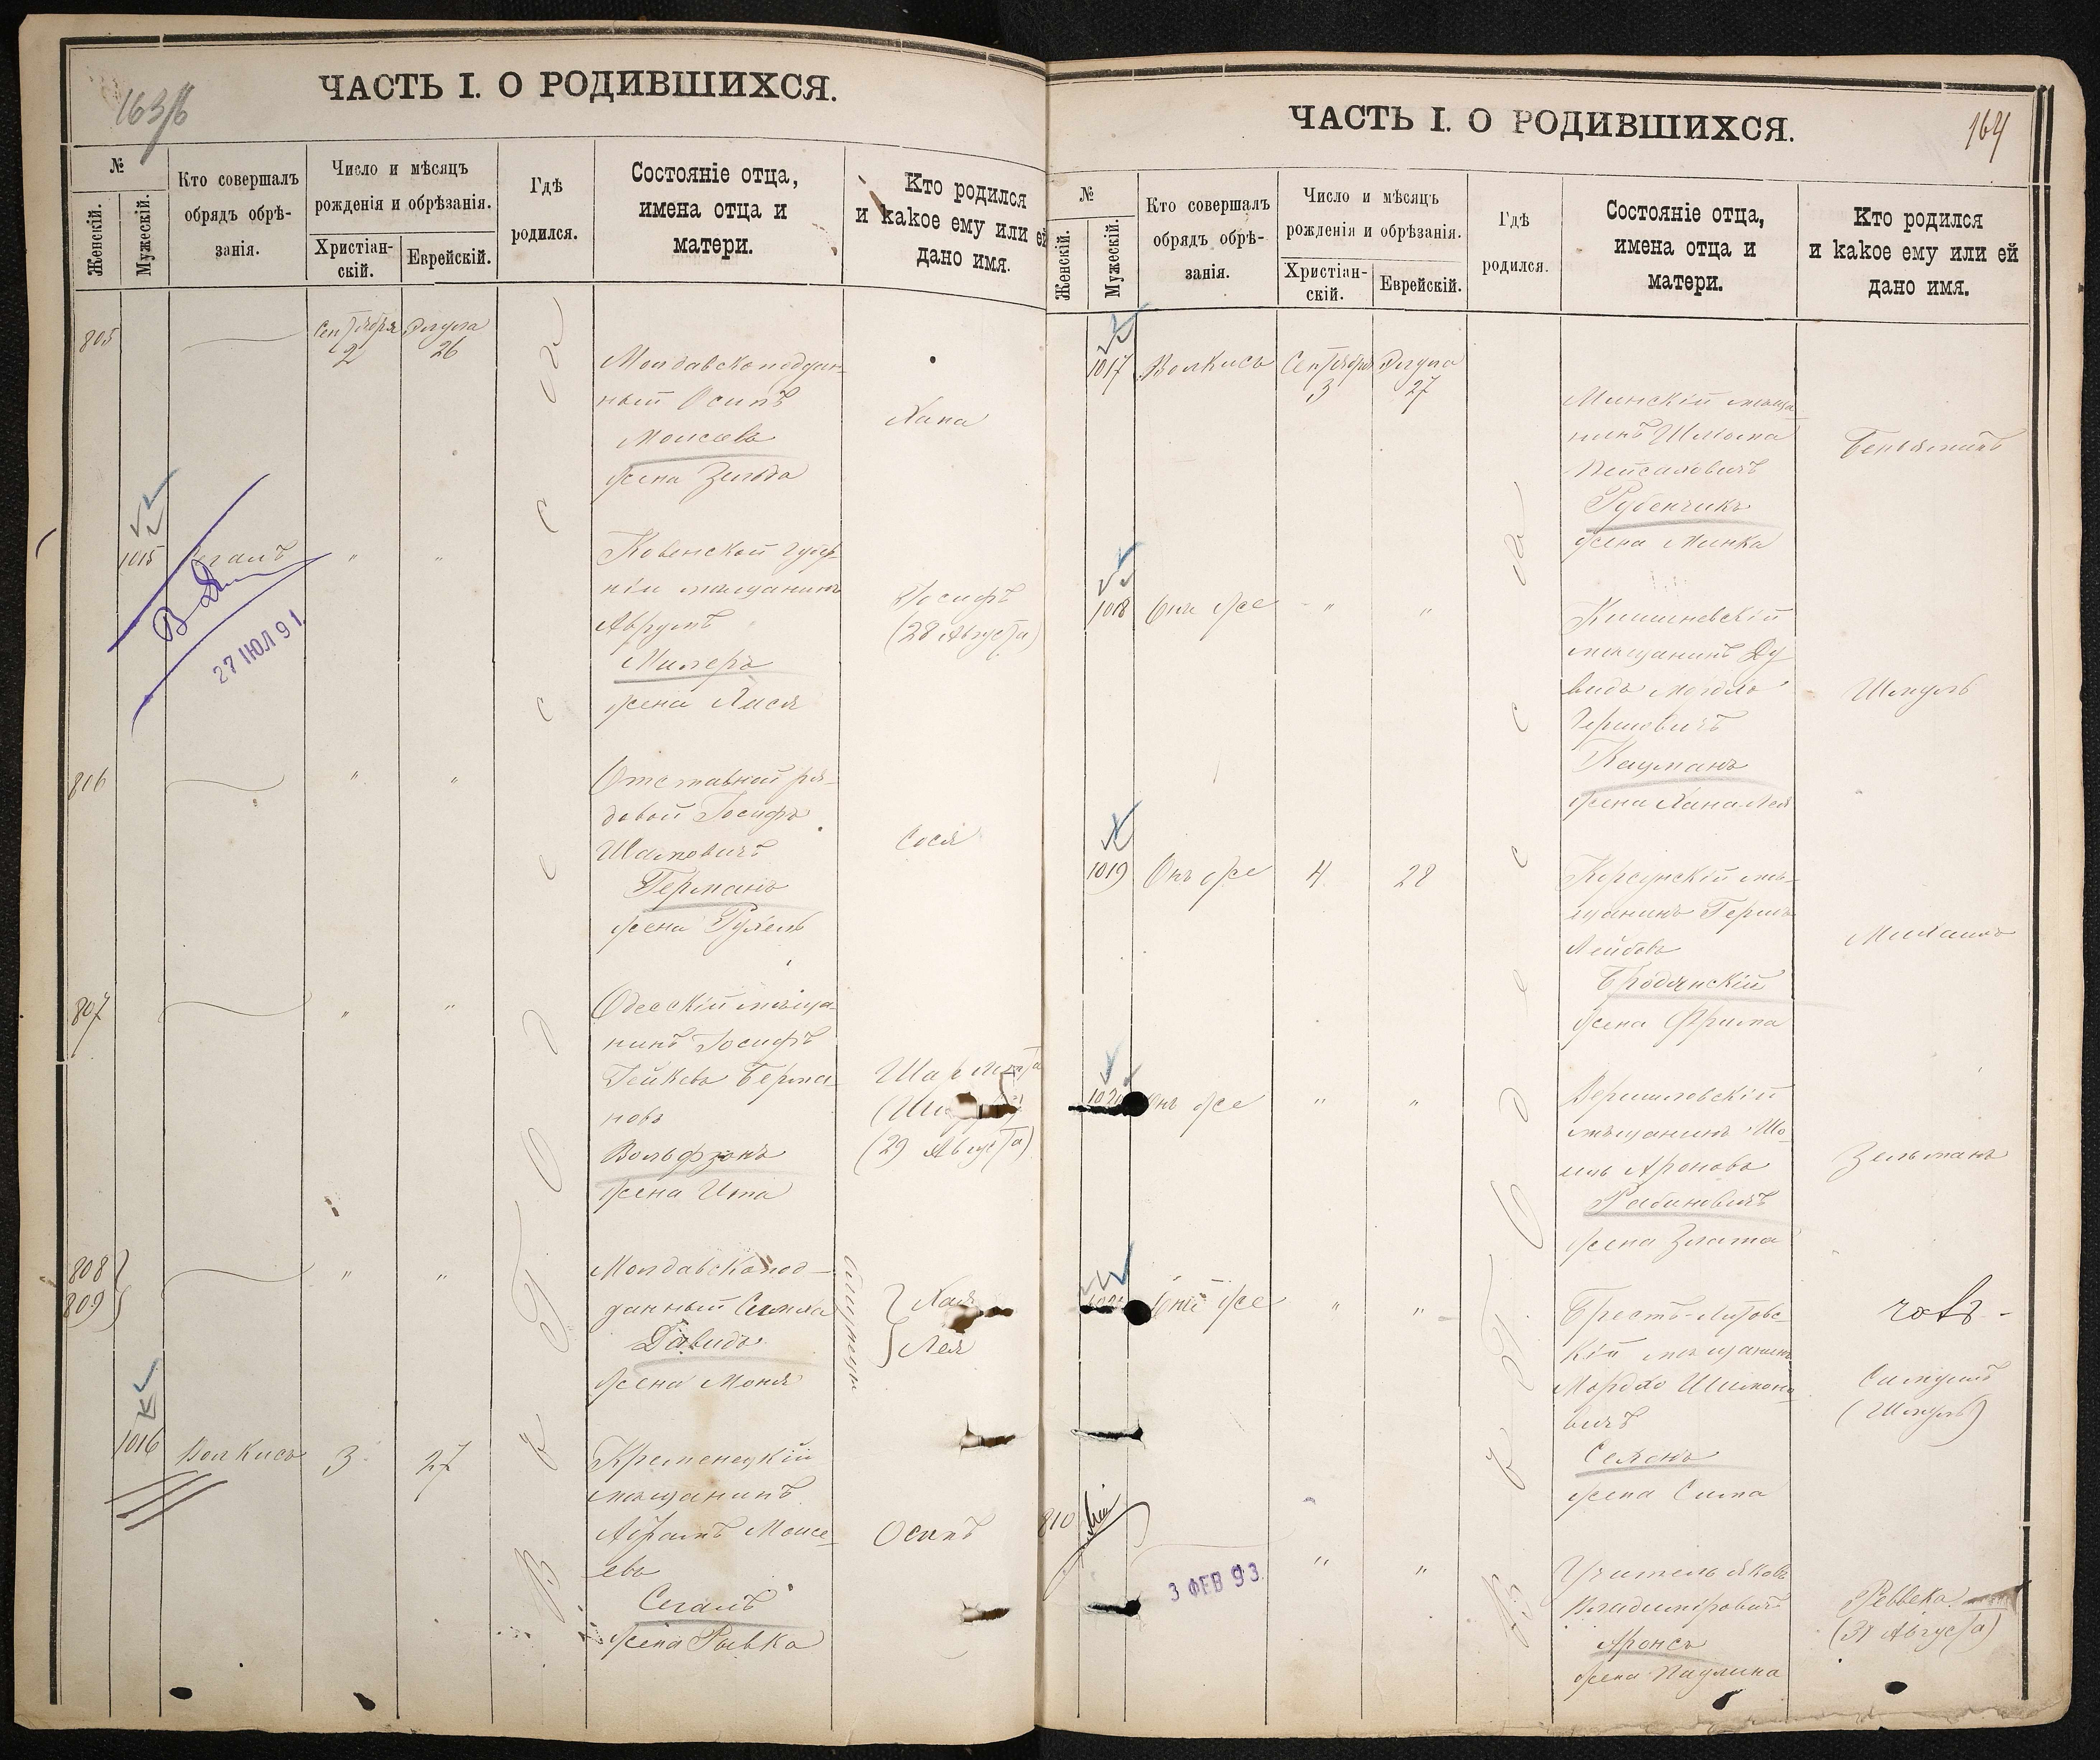 163/б
ЧАСТЬ I. О РОДИВШИХСЯ.
№
Женскій.
Мужескій.
Кто совершалъ
обрядъ обрѣ-
занія.
Число и мѣсяцъ
рожденія и обрѣзанія.
Христіан-
скій.
Еврейскій.
Гдѣ
родился.
Состояніе отца,
имена отца и
матери.
Кто родился
и какое ему или ей
дано имя.
805
Сентября
2
26
Молдавскоподдан-
ный Осипъ
Моисеевъ
жена Зельда
Хана
1015
Сегалъ
" "
Ковенской губер-
ніи мѣщанинъ
Аврумъ
Милеръ
жена Хася
Іосифъ
(28 Августа)
27 ІЮЛ 91
806
" "
Отставной ря-
довой Іосифъ
Германъ
жена Рухель
Сося
807
" "
Одесскій мѣща-
нинъ Іосифъ
Берма-
новъ
Вольфзонъ
жена Ита
Шарлота
(29 Августа)
808
809
" "
Молдавскопод-
данный Симха
Давидъ
жена Моня
близнецы
Хая
Лея
1016
Волкисъ
3
27
Кременецкій
мѣщанинъ
Абрамъ Моисе-
евъ
Сегалъ
жена Рывка
Осипъ
В г. Одессѣ
164
ЧАСТЬ I. О РОДИВШИХСЯ.
№
Женскій.
Мужескій.
Кто совершалъ
обрядъ обрѣ-
занія.
Число и мѣсяцъ
рожденія и обрѣзанія.
Христіан-
скій.
Еврейскій.
Гдѣ
родился.
Состояніе отца,
имена отца и
матери.
Кто родился
и какое ему или ей
дано имя.
1017
Волкисъ
Сентября
3
27
Минскій мѣща-
нинъ Шлиома
Пейсаховичъ
Рубенчикъ
жена Минка
Беньяминъ
1018
Онъ же
" "
Кишиневскій
мѣщанинъ Ду-
видъ
Гершковичъ
Кауманъ
жена Хана Лея
Шмуль
1019
Онъ же
4
28
Херсонскій мѣ-
щанинъ Гершъ
Лейбовъ
Бродянскій
жена Фрима
Михаилъ
1020
Онъ же
" "
мѣщанинъ Шо-
елъ Ароновъ
Рабиновичъ
жена Злата
Зельманъ
1021
Онъ же
" "
Брестъ-Литовс-
кій мѣщанинъ
Мордхо Шимоно-
вичъ
жена Сима
Самуилъ
(Шмуль)
810
3 ФЕВ 93.
" "
Учитель Яковъ
Владиміровичъ
Аронсъ
жена Паулина
Ревекка
(31 Августа)
В г. Одессѣ